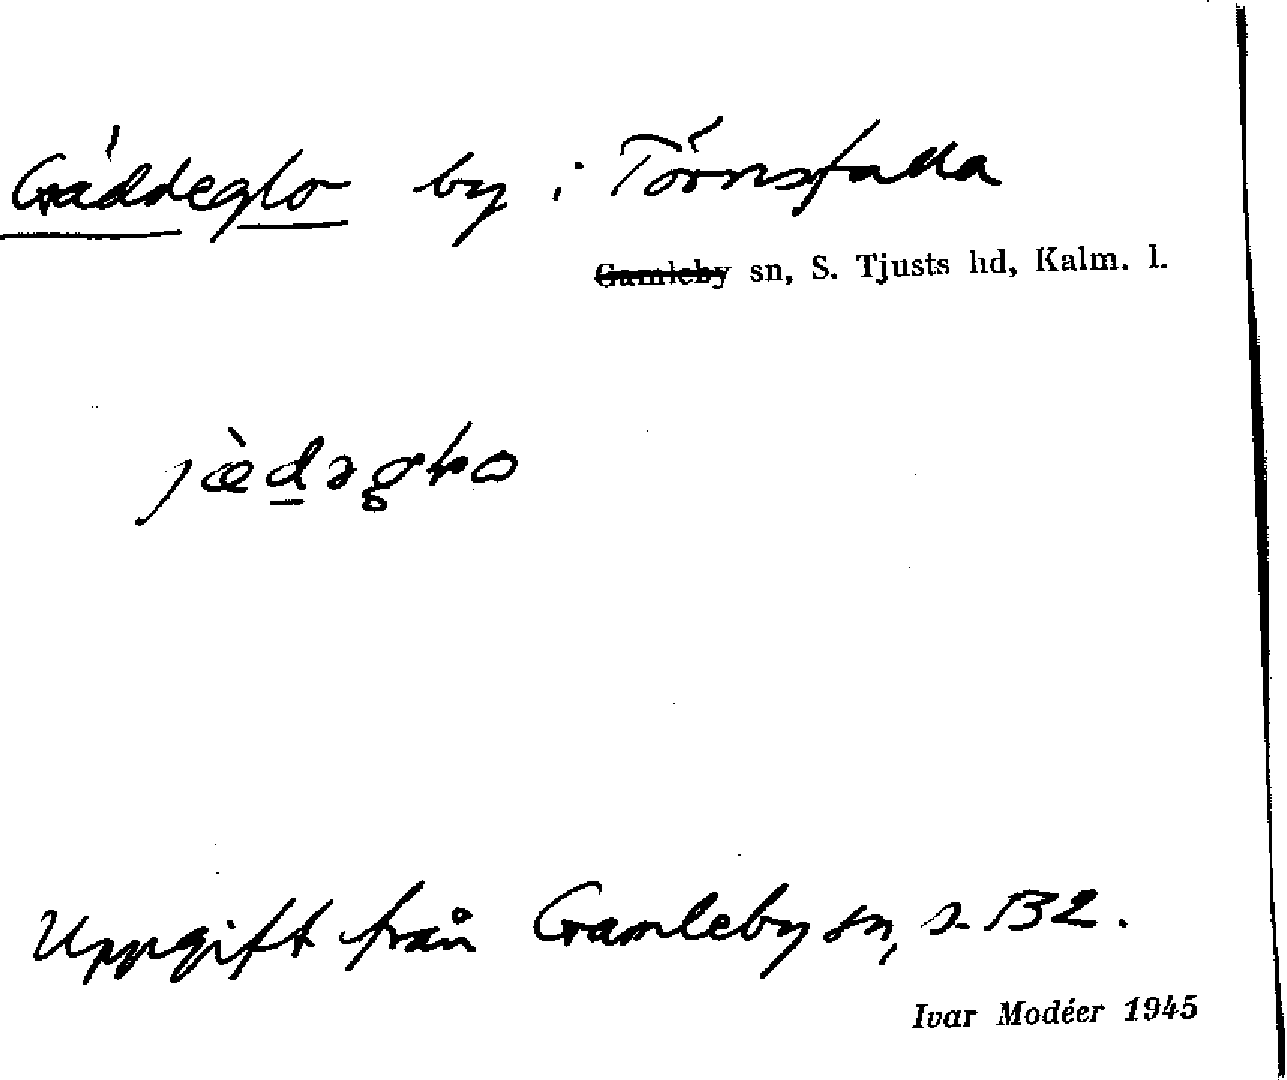 Gäddeglo by i Törnsfalla
Gamleby sn, S. Tjusts hd, Kalm. l.
Uppgift från Gamleby sn, s. 132.
Ivar Modéer 1945